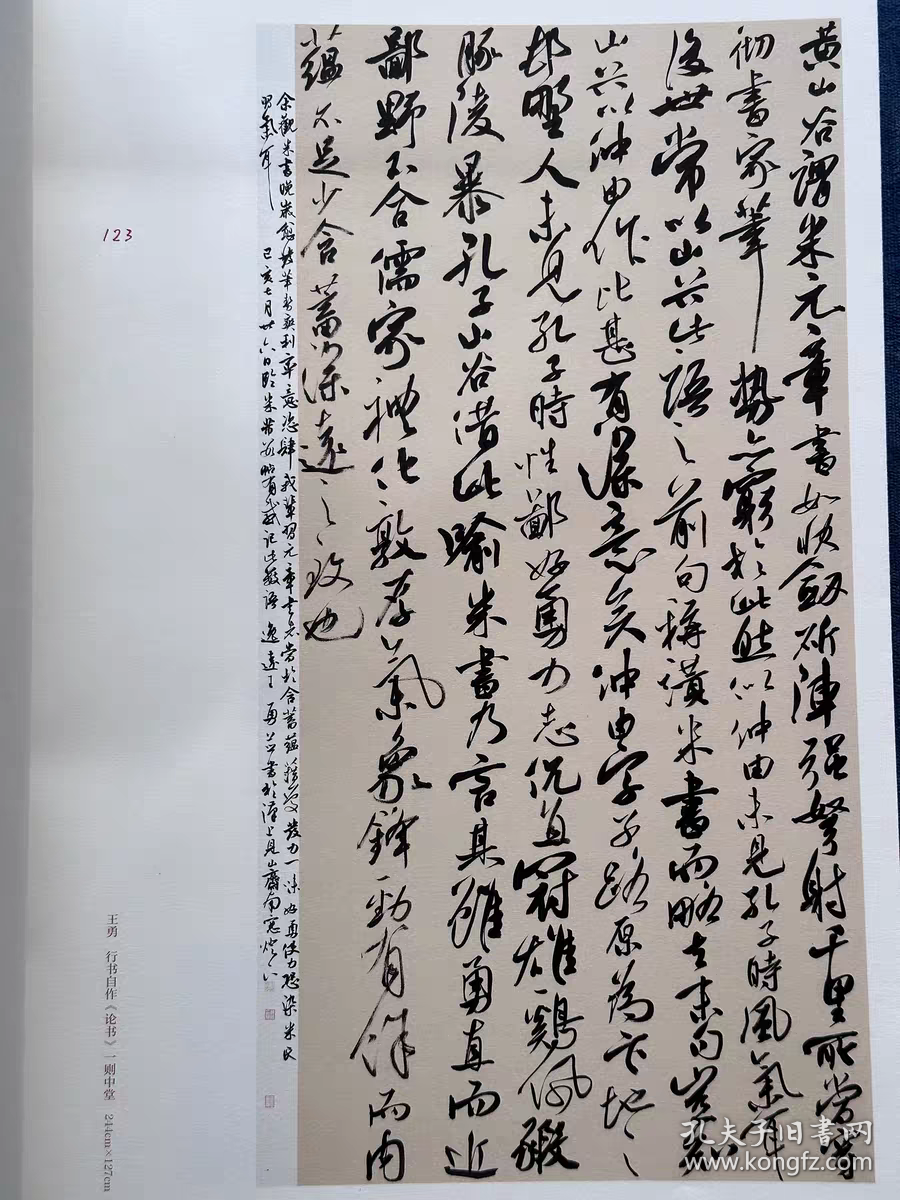 黄山谷谓米元章書如快劔斫陣强弩射千里所當穿
彻書家筆勢亦窮於此然似仲由未見孔子時風氣耳
後世常以山谷此語之前句稱讚米書而略去末句豈知
山谷以仲由作比甚有深意矣仲由字子路原為卞地之
邨野人未見孔子時性鄙好勇力志伉直冠雄鷄佩豭
豚陵暴孔子山谷借此喻米書乃言其雖勇直而近
鄙野不合儒家禮化敦厚氣象鋒勁有餘而内
蕴不足少含蓄深遠之致也
余觀米書晚歲愈
章意恣肆我輩習元章書不當於含蓄蕴
發力一味好勇使力恐染米氏
習氣耳
己亥七月廿六日臨米帖
有感記此數語逸遠王勇
123
王勇 行书自作《论书》一则中堂 244cm×127cm
孔夫子旧书网
www.kongfz.com